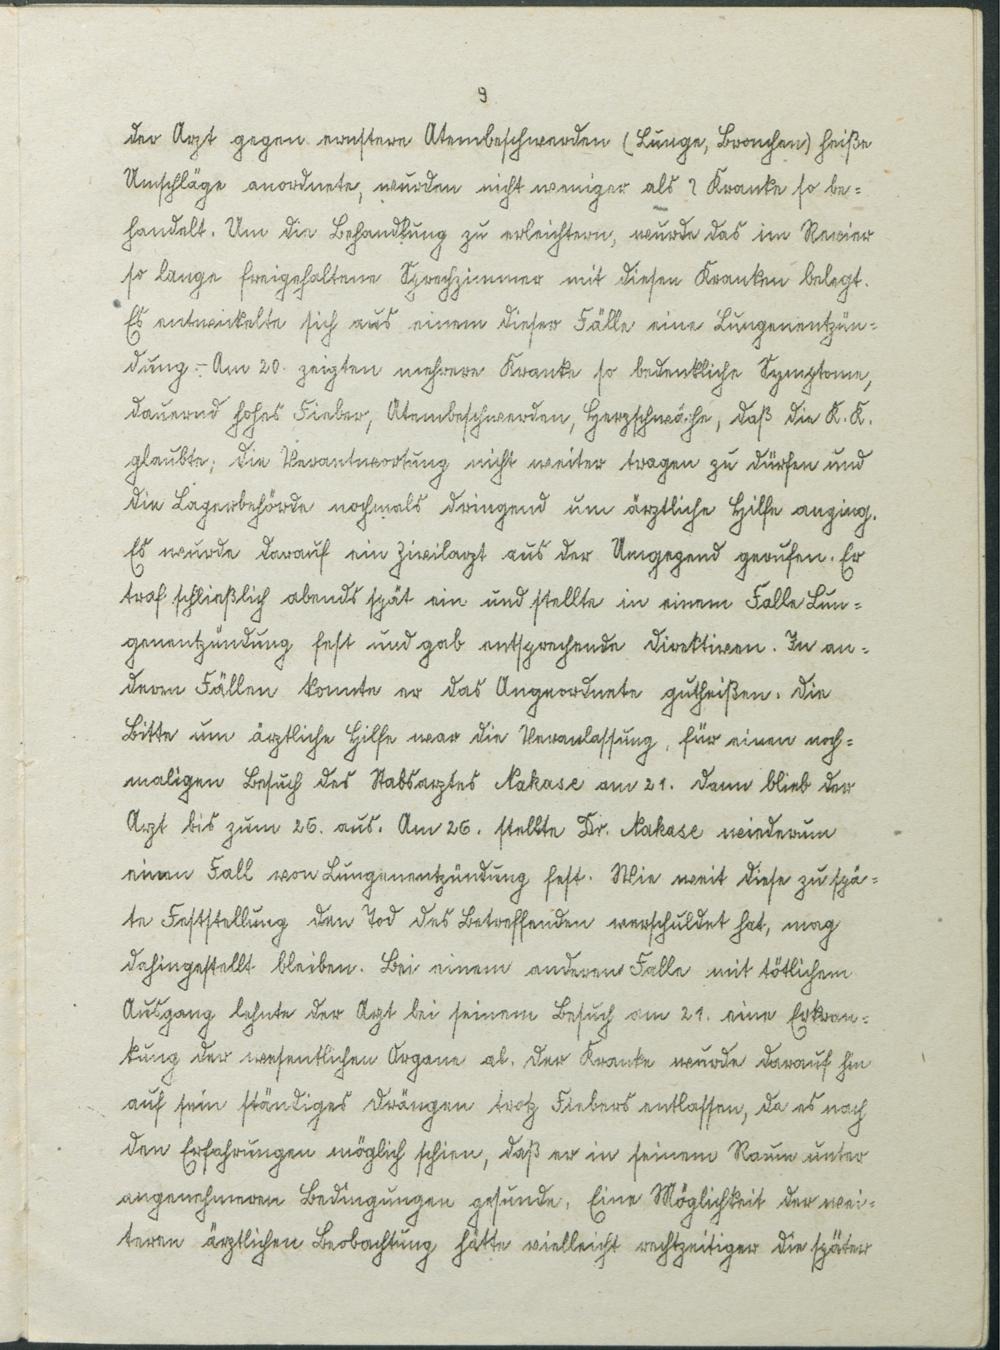 9
der Arzt gegen ernstere Atembeschwerden (Lunge, Bronchen) heiße
Umschläge anordnete, wurden nicht weniger als 7 Kranke so be=
handelt. Um die Behandlung zu erleichtern, wurde das im Revier
so lange freigehaltene Sprechzimmer mit diesen Kranken belegt.
Es entwickelte sich aus einem dieser Fälle eine Lungenentzün=
dung.- Am 20. zeigten mehrere Kranke so bedenkliche Symptome,
dauernd hohes Fieber, Atembeschwerden, Herzschwäche, daß die K.K.
glaubte, die Verantwortung nicht weiter tragen zu dürfen und
die Lagerbehörde nochmals dringend um ärztliche Hilfe anging.
Es wurde darauf ein Zivilarzt aus der Umgegend gerufen. Er
traf schließlich abends spät ein und stellte in einem Falle Lun=
genentzündung fest und gab entsprechende Direktiven. In an=
deren Fällen konnte er das Angeordnete gutheißen. Die
Bitte um ärztliche Hilfe war die Veranlassung, für einen noch=
maligen Besuch des Stabsarztes Nakase am 21. Dann blieb der
Arzt bis zum 26. aus. Am 26. stellte Dr. Nakase wiederum
einen Fall von Lungenentzündung fest. Wie weit diese zu spä=
te Feststellung den Tod des Betreffenden verschuldet hat, mag
dahingestellt bleiben. Bei einem anderen Falle mit tötlichem
Ausgang lehnte der Arzt bei seinem Besuch am 21. eine Erkran=
kung der wesentlichen Organe ab. Der Kranke wurde darauf hin
auf sein ständiges Drängen trotz Fiebers entlassen, da es nach
den Erfahrungen möglich schien, daß er in seinem Raum unter
angenehmeren Bedingungen gesunde. Eine Möglichkeit der wei=
teren ärztlichen Beobachtung hätte vielleicht rechtzeitiger die später